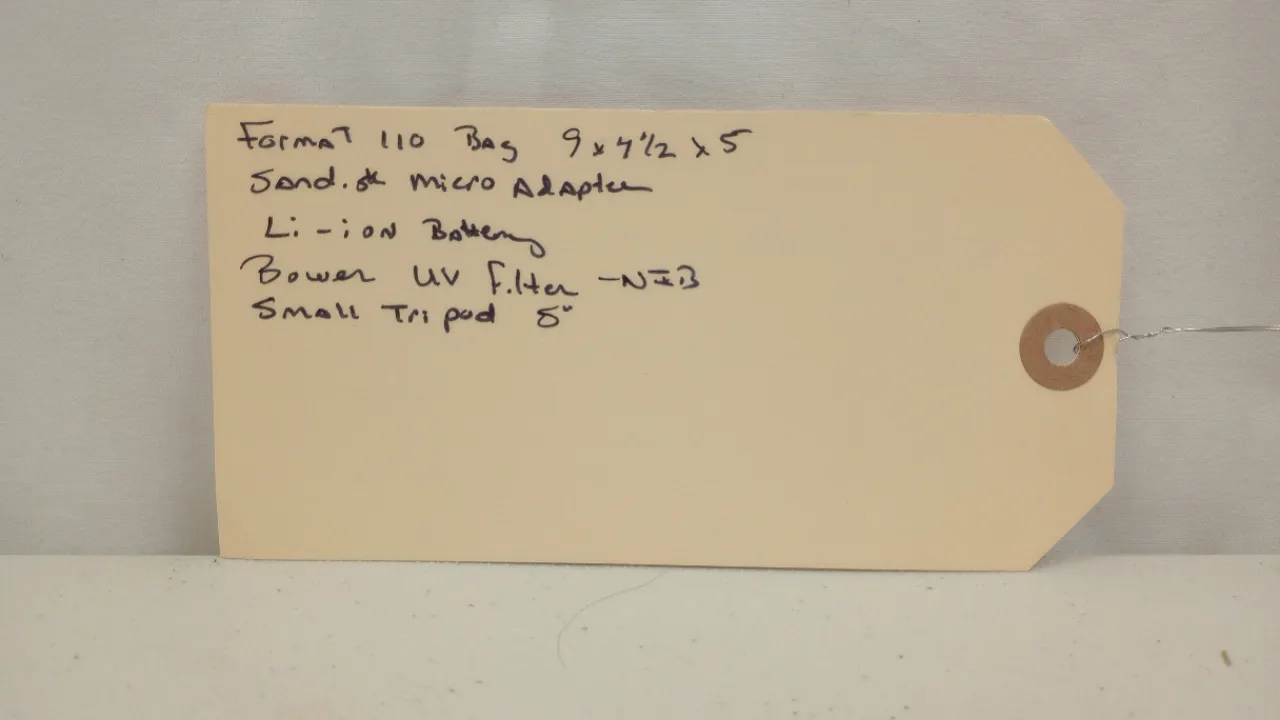 Format 110 Bag 9 x 4 1/2 x 5
Sandisk Micro Adapter
Li-ion Battery
Bower UV Filter - NIB
Small Tripod 5"